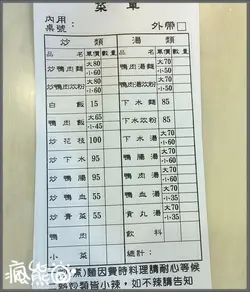 菜單
內用
桌號： 外帶□
炒類 湯類
品名 單價 數量 品名 單價 數量
炒鴨肉麵 大80 小60 鴨肉湯麵 大70 小50
炒鴨肉炊粉 大80 小60 鴨肉湯炊粉 大70 小50
白飯 15 下水麵 85
鴨肉飯 大65 小45 下水炊粉 85
炒花枝 100 下水湯 大70 小50
炒下水 95 鴨腸湯 大70 小50
炒鴨腸 95 鴨肉湯 大70 小60
炒鴨血 55 鴨血湯 大35
炒青菜 55 貢丸湯 大35
鴨肉 飲料
小菜 總計：
麵因費時料理請耐心等候
熱炒類皆小辣，如不辣請告知
瘋熊窩